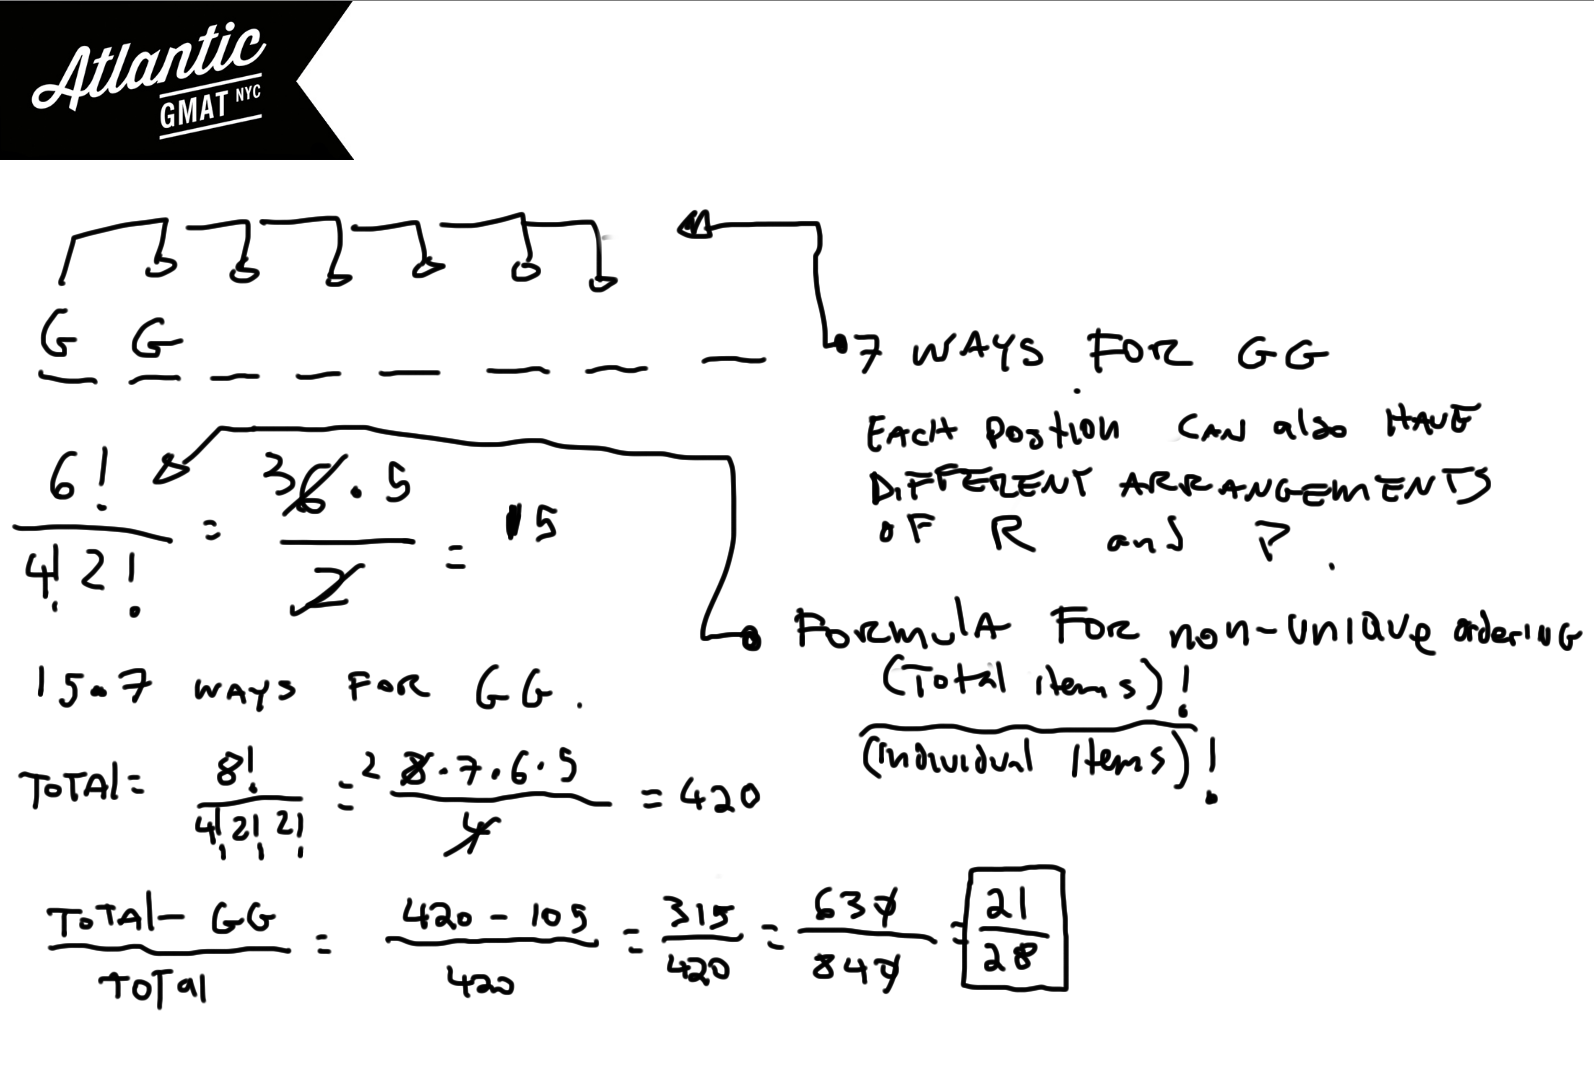 Atlantic
GMAT NYC
G G
7 WAYS FOR GG
EACH Postion CAN also HAVE
DIFFERENT ARRANGEMENTS
OF R and P.
6! / 4! 2! = 3 6 · 5 / 2 = 15
FormulA FOR non-unique ordering
(Total items)!
(individual items)!
15 · 7 WAYS FOR GG.
TOTAl = 8! / 4! 2! 2! = 2 8 · 7 · 6 · 5 / 4 = 420
TOTAl - GG / TOTAl = 420 - 105 / 420 = 315 / 420 = 630 / 840 = 21 / 28